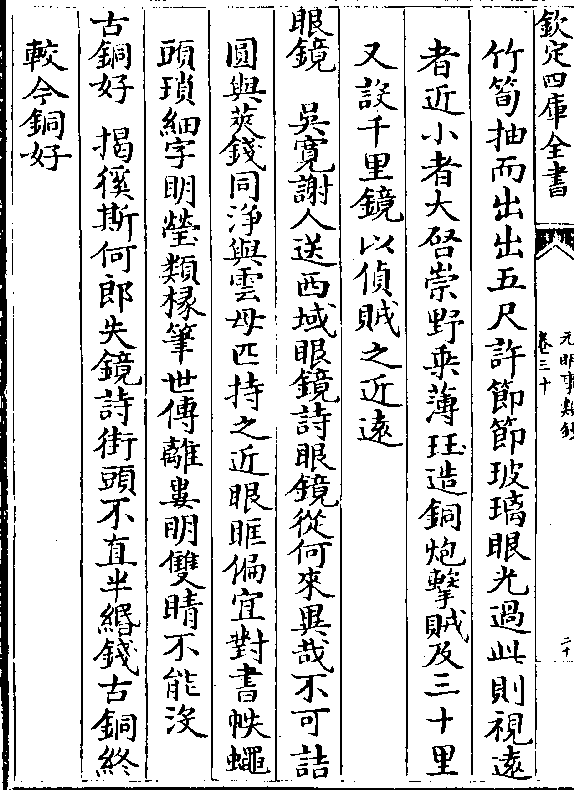 欽定四庫全書
元明事類鈔
卷三十
二十
竹筍抽而出出五尺許節節玻璃眼光過此則視遠
者近小者大啓崇野乘薄珏造銅炮擊賊及三十里
又設千里鏡以偵賊之近遠
眼鏡　吳寛謝人送西域眼鏡詩眼鏡從何來異哉不可詰
圓與莢錢同淨與雲母匹持之近眼眶偏宜對書帙蠅
頭瑣細字明瑩類椽筆世傳離婁明雙睛不能沒
古銅好　揭徯斯何郎失鏡詩街頭不直半緡錢古銅終
較今銅好